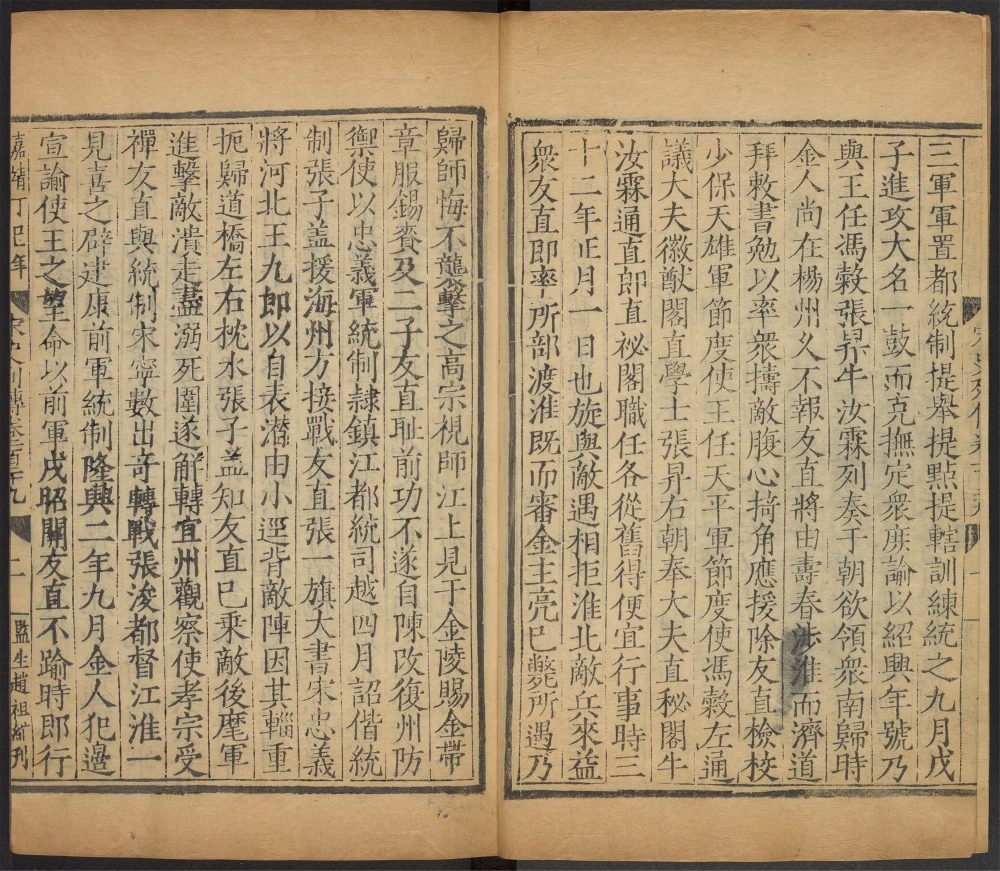 三軍軍置都統制提舉提點提轄訓練統之九月戊
子進攻大名一鼓而克撫定衆庶諭以紹興年號乃
與王任馮穀張昇牛汝霖列奏于朝欲領衆南歸時
金人尚在楊州久不報友直將由壽春涉淮而濟道
拜敕書勉以率衆擣敵腹心掎角應援除友直檢校
少保天雄軍節度使王任天平軍節度使馮穀左通
議大夫徽猷閣直學士張昇右朝奉大夫直秘閣牛
汝霖通直郎直祕閣職任各從舊得便宜行事時三
十二年正月一日也旋與敵遇相拒淮北敵兵來益
衆友直即率所部渡淮既而審金主亮已斃所遇乃
歸師悔不襲擊之高宗視師江上見于金陵賜金帶
章服錫賚及二子友直耻前功不遂自陳改復州防
禦使以忠義軍統制隷鎮江都統司越四月詔偕統
制張子盖援海州方接戰友直張一旗大書宋忠義
將河北王九郎以自表潛由小逕背敵陣因其輜重
扼歸道橋左右枕水張子盖知友直已乗敵後麾軍
進擊敵潰走盡溺死圍遂解轉宜州觀察使孝宗受
禪友直與統制宋寧數出奇轉戰張浚都督江淮一
見喜之辟建康前軍統制隆興二年九月金人犯邊
宣諭使王之望命以前軍戍昭關友直不踰時即行
嘉靖丁巳年
宋史列傳卷百二十九
二
監生趙祖刊